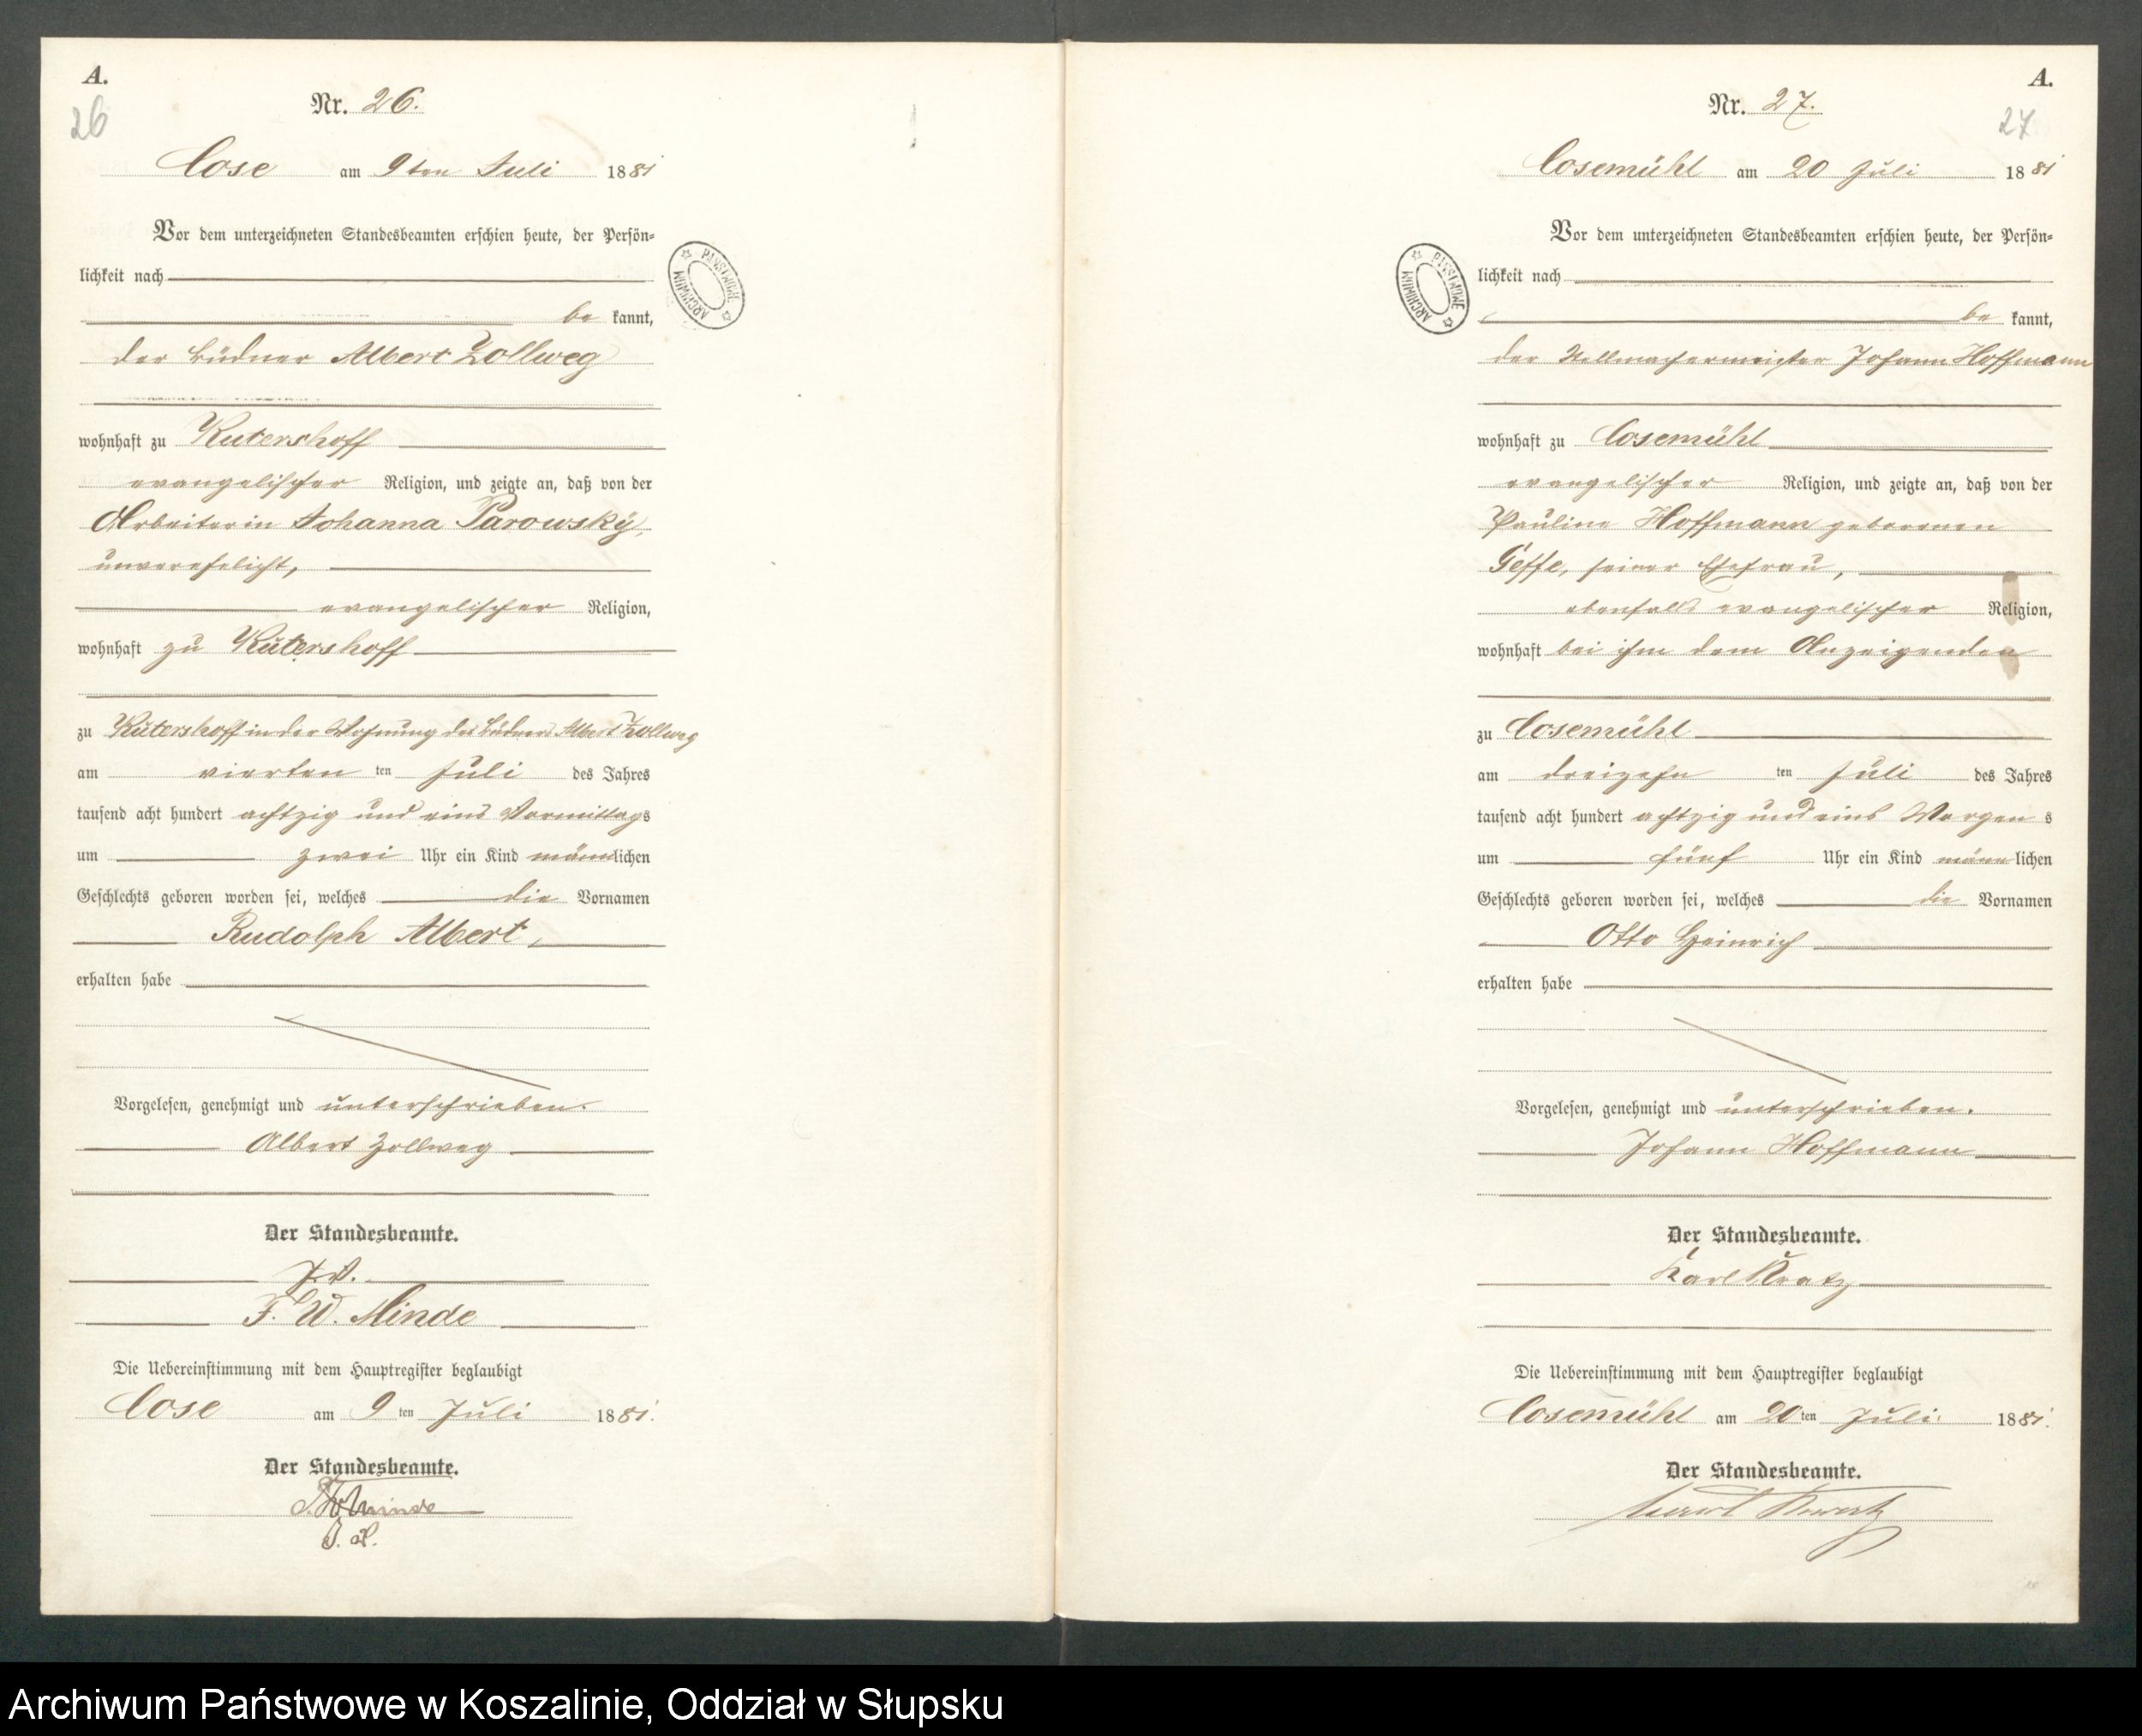 A.
26
Nr. 26.
Cose am 9ten Juli 1881
Vor dem unterzeichneten Standesbeamten erschien heute, der Persön=
lichkeit nach
be kannt,
der Büdner Albert Zollweg
wohnhaft zu Kutershoff
evangelischer Religion, und zeigte an, daß von der
Arbeiterin Johanna Parowsky,
unverehelicht,
evangelischer Religion,
wohnhaft zu Kütershoff
zu Kütershoff in der Wohnung des Büdners Albert Zollweg
am vierten ten Juli des Jahres
tausend acht hundert achtzig und eins Vormittags
um zwei Uhr ein Kind männlichen
Geschlechts geboren worden sei, welches die Vornamen
Rudolph Albert,
erhalten habe
Vorgelesen, genehmigt und unterschrieben.
Albert Zollweg
Der Standesbeamte.
J. V.
F. W. Minde
Die Uebereinstimmung mit dem Hauptregister beglaubigt
Cose am 9 ten Juli 1881.
Der Standesbeamte.
F. W. Minde
J. V.
ARCHIWUM PAŃSTWOWE
A.
27
Nr. 27.
Cosemühl am 20 Juli 1881
Vor dem unterzeichneten Standesbeamten erschien heute, der Persön=
lichkeit nach
be kannt,
der Stellmachermeister Johann Hoffmann
wohnhaft zu Cosemühl
evangelischer Religion, und zeigte an, daß von der
Pauline Hoffmann geborenen
seiner Ehefrau,
ebenfalls evangelischer Religion,
wohnhaft bei ihm dem Anzeigenden
zu Cosemühl
am dreizehn ten Juli des Jahres
tausend acht hundert achtzig und eins Morgen s
um fünf Uhr ein Kind männlichen
Geschlechts geboren worden sei, welches die Vornamen
Otto Heinrich
erhalten habe
Vorgelesen, genehmigt und unterschrieben.
Johann Hoffmann
Der Standesbeamte.
Karl Kratz
Die Uebereinstimmung mit dem Hauptregister beglaubigt
Cosemühl am 20 ten Juli 1881.
Der Standesbeamte.
ARCHIWUM PAŃSTWOWE
Archiwum Państwowe w Koszalinie, Oddział w Słupsku